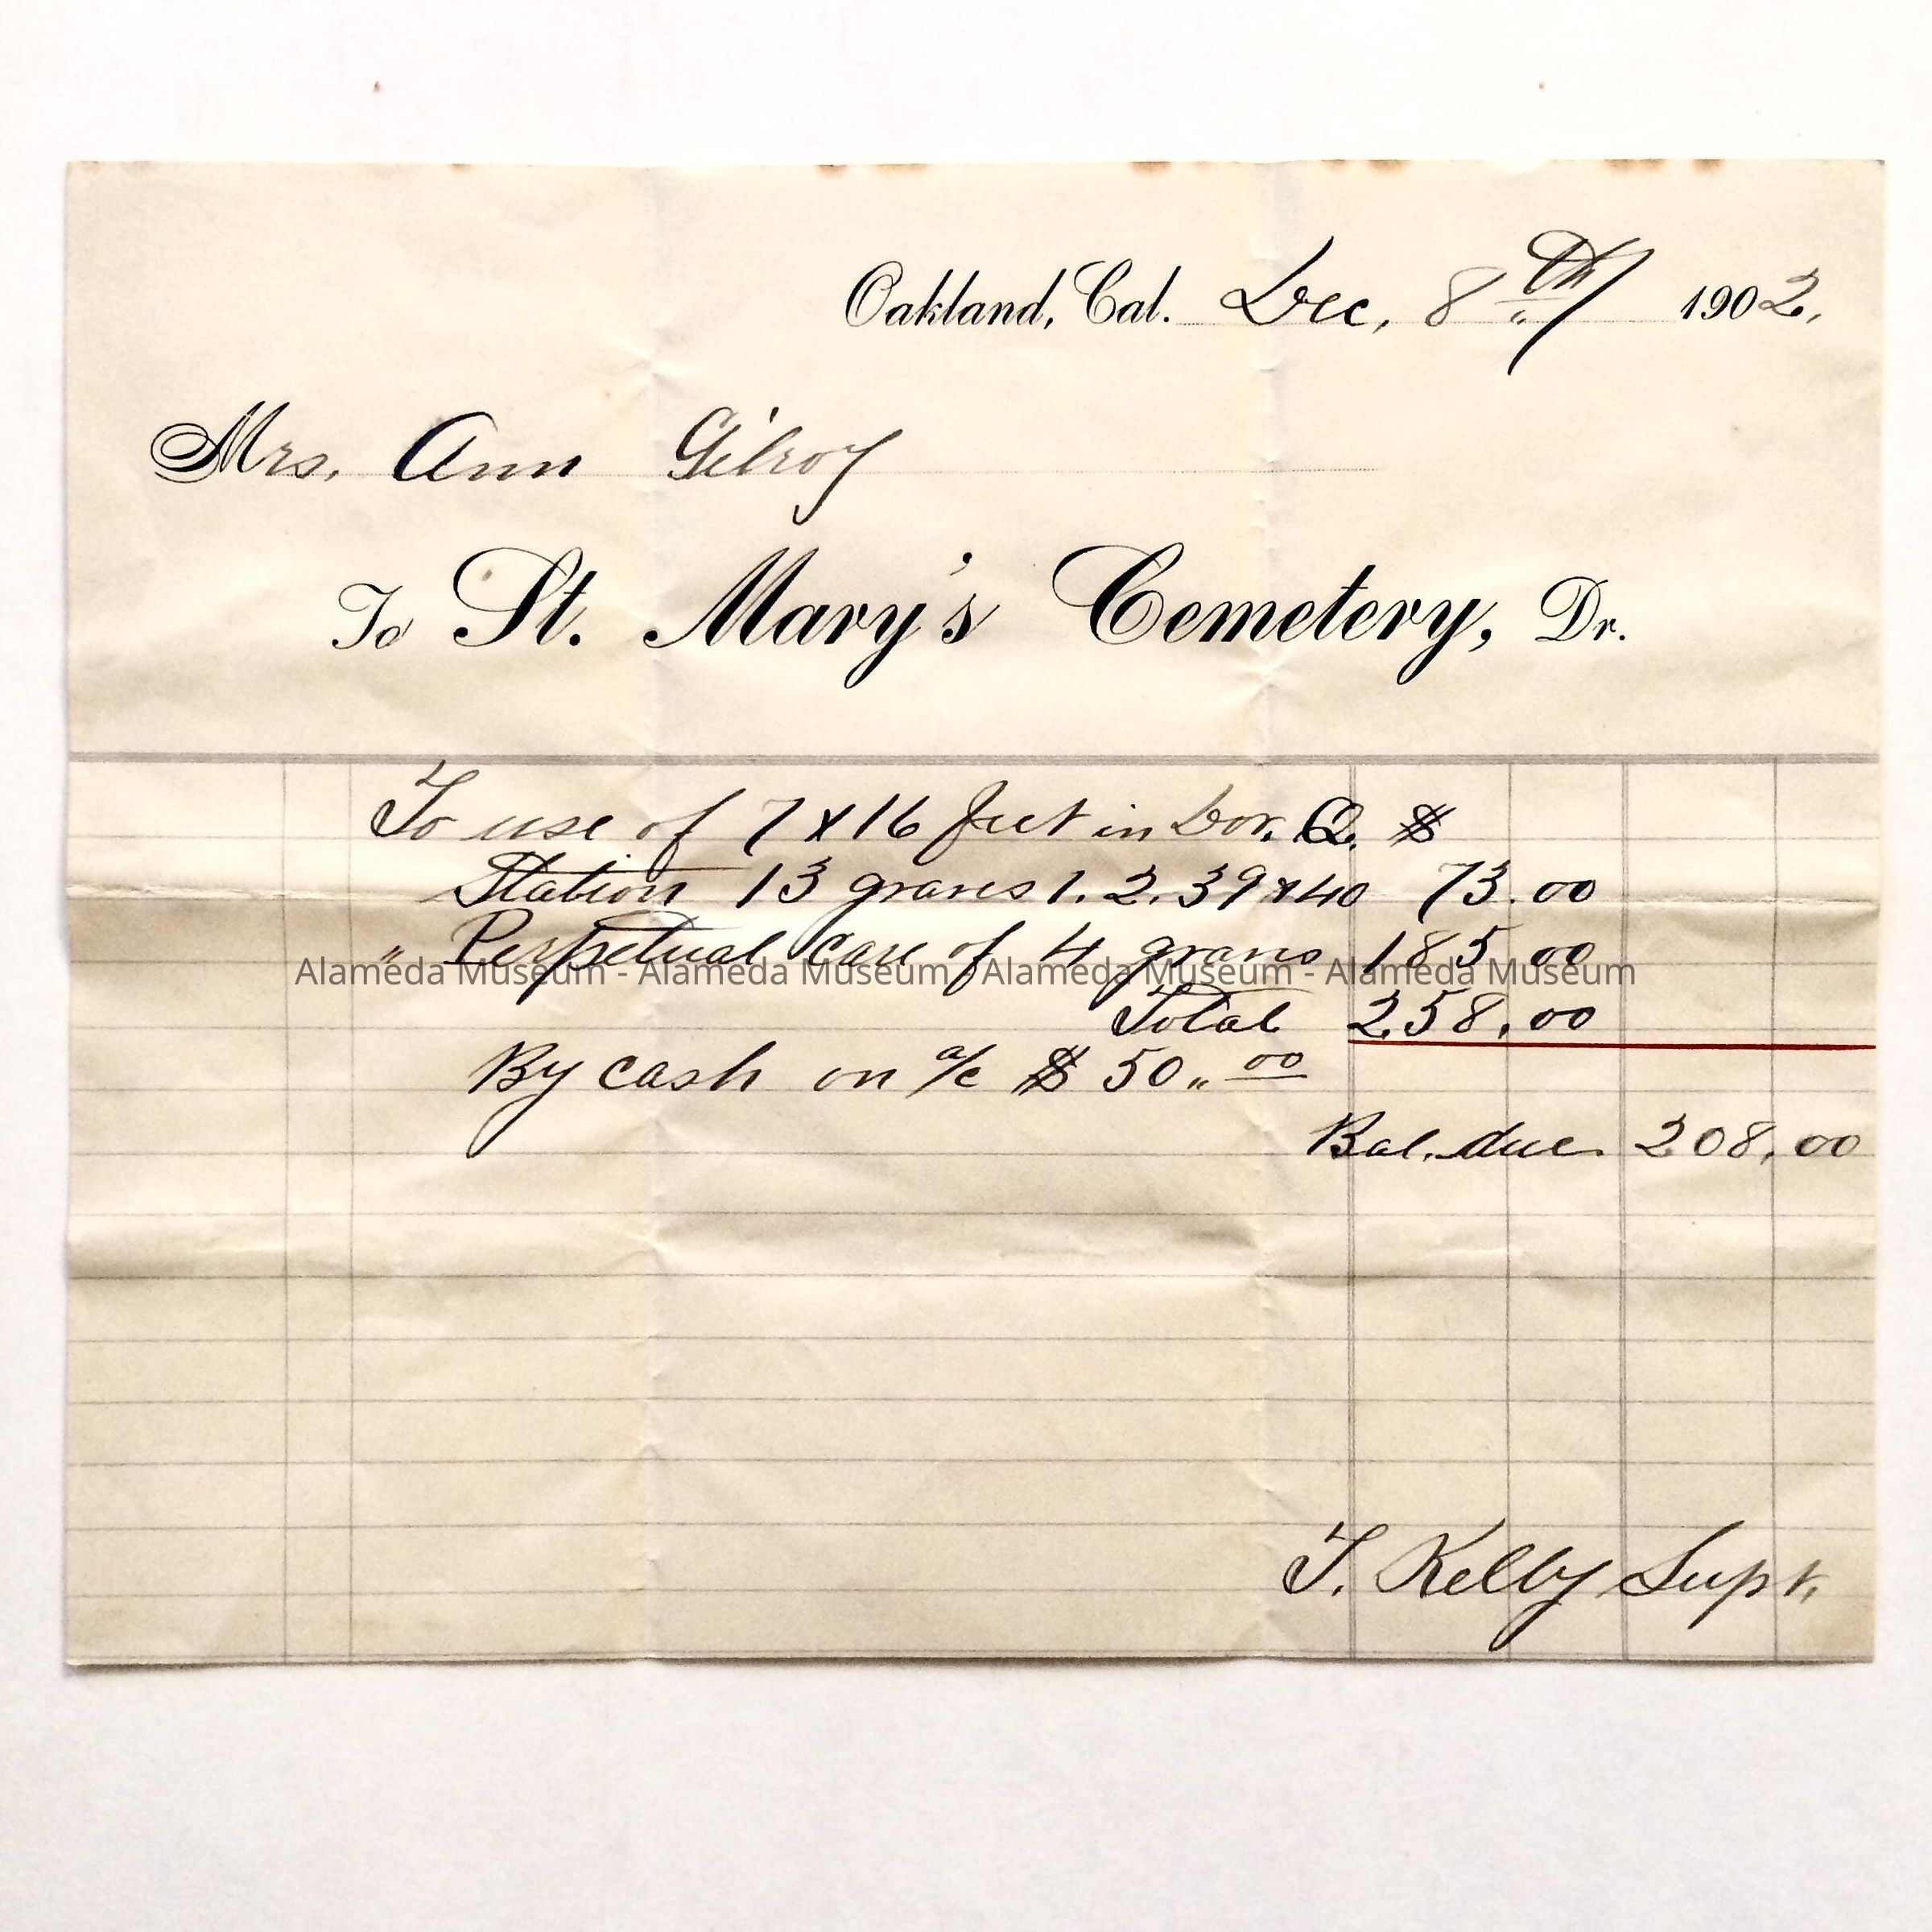 Oakland, Cal. Dec, 8th 1902,
Mrs. Ann Gilroy
To St. Mary's Cemetery, Dr.
To use of 7 x 16 feet in Q. $
Station 13 graves 1. 2. 39 & 40 73.00
" Perpetual care of 4 graves 185.00
Alameda Museum - Alameda Museum - Alameda Museum - Alameda Museum
Total 258.00
By cash on a/c $ 50.,00
Bal. due 208,00
T. Kelly Supt.